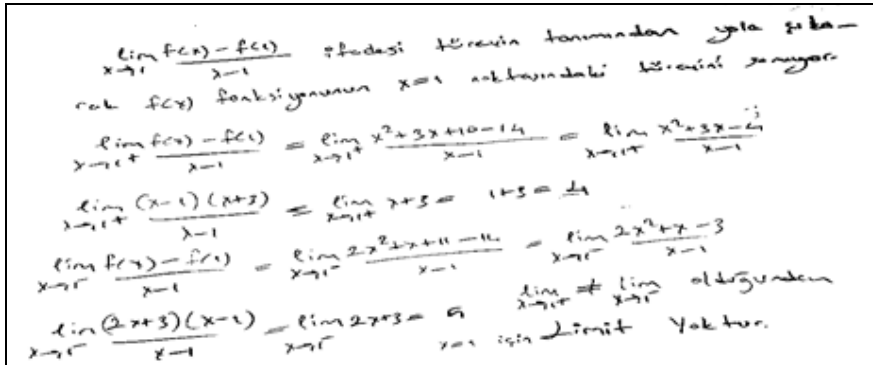 lim x→1 f(x) − f(1) / x−1 ifadesi türevin tanımından yola çıka–
rak f(x) fonksiyonunun x=1 noktasındaki türevini soruyor.
lim x→1+ f(x) − f(1) / x−1 = lim x→1+ x²+3x+10−14 / x−1 = lim x→1+ x²+3x−4 / x−1
lim x→1+ (x−1)(x+3) / x−1 = lim x→1+ x+3 = 1+3 = 4
lim x→1− f(x) − f(1) / x−1 = lim x→1− 2x²+x+11−14 / x−1 = lim x→1− 2x²+x−3 / x−1
lim x→1− (2x+3)(x−1) / x−1 = lim x→1− 2x+3 = 5 lim x→1+ ≠ lim x→1− olduğundan
x=1 için Limit Yoktur.